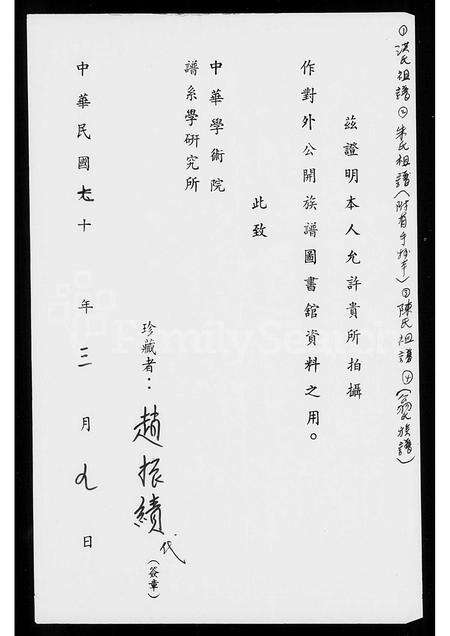 ①洪氏祖譜②朱氏祖譜(附首手抄本)③陳氏祖譜④(翁氏族譜)
茲證明本人允許貴所拍攝
作對外公開族譜圖書館資料之用。
此致
中華學術院
譜系學研究所
珍藏者：趙振績代(簽章)
中華民國七十年三月九日
FamilySearch